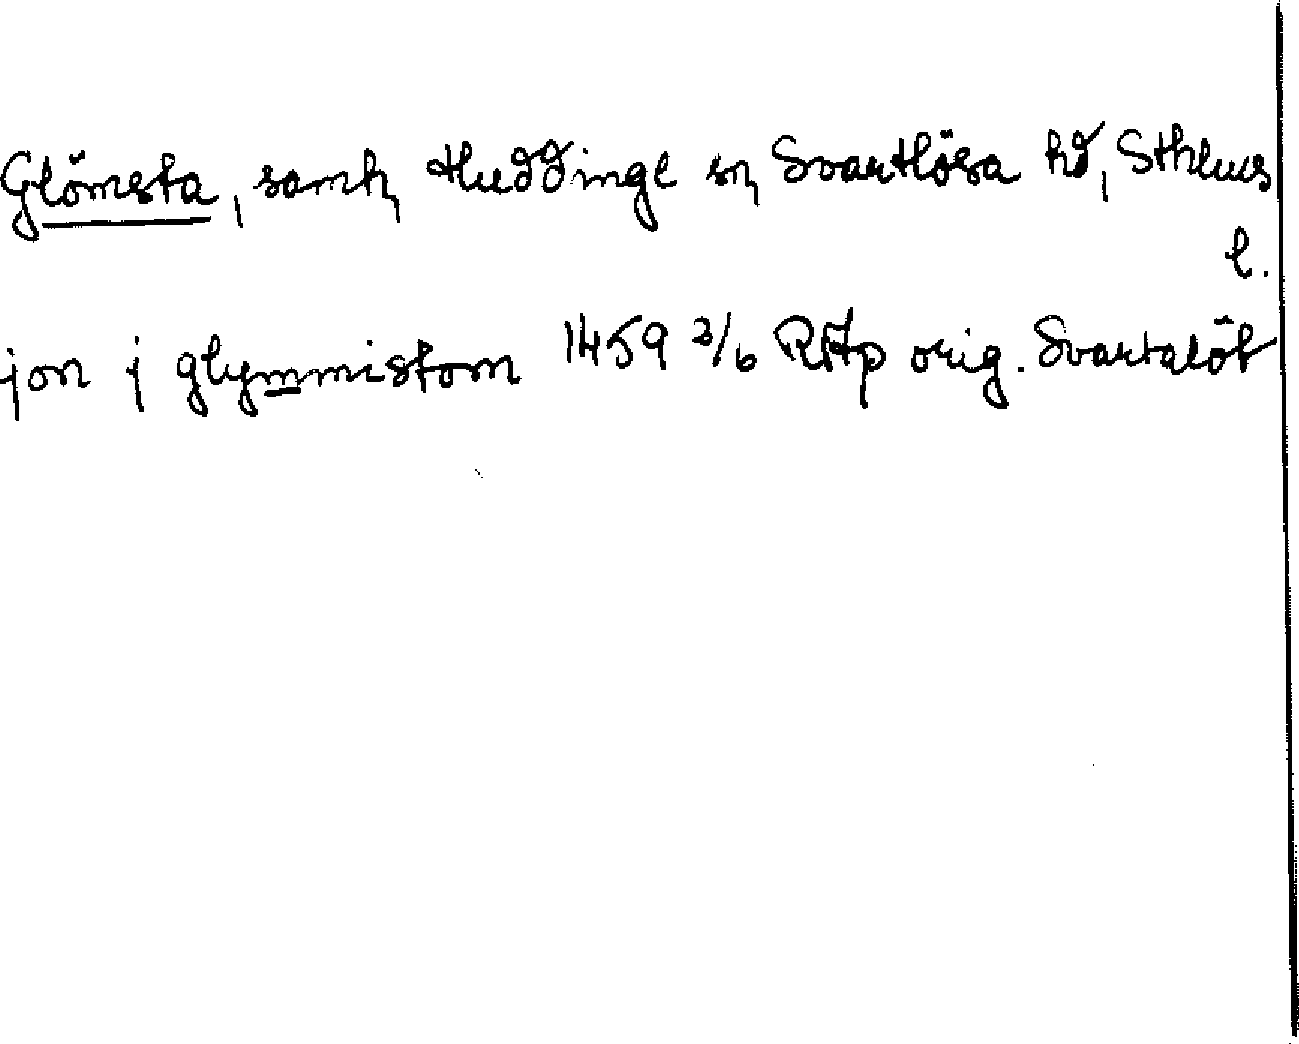 Glömsta, samh, Huddinge sn, Svartlösa hd, Sthlms
l.
jon j glymmistom 1459 3/6 RAp orig. Svartalöt